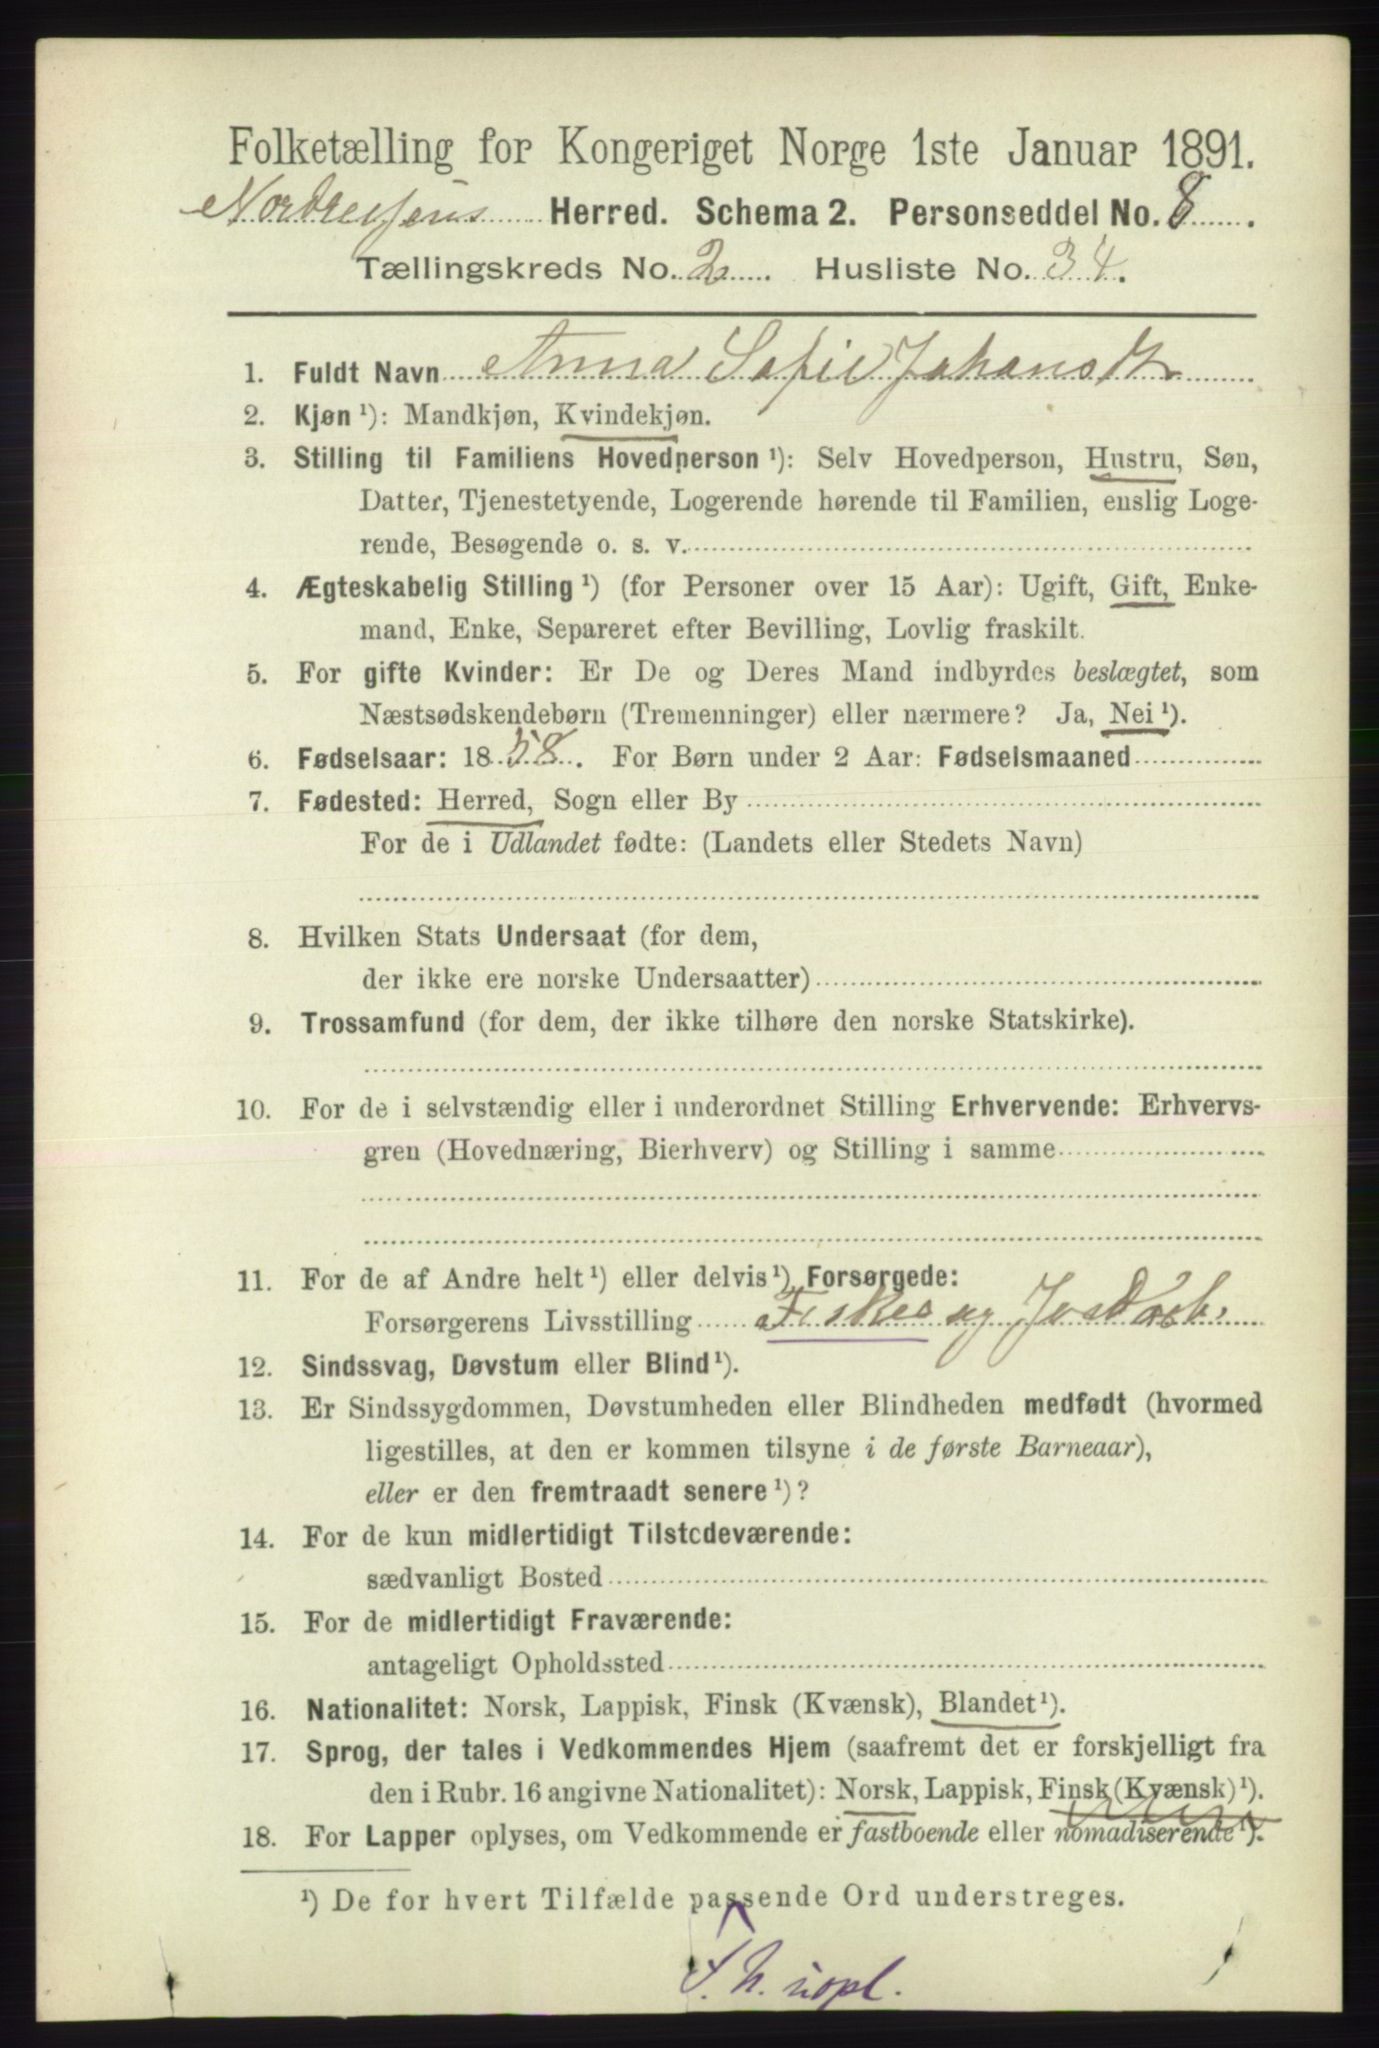 Folketælling for Kongeriget Norge 1ste Januar 1891.
Nordreisens Herred. Schema 2. Personseddel No. 8.
Tællingskreds No. 2. Husliste No. 34.
1. Fuldt Navn Anna Sofie Johansdtr
2. Kjøn ¹): Mandkjøn, Kvindekjøn.
3. Stilling til Familiens Hovedperson ¹): Selv Hovedperson, Hustru, Søn,
Datter, Tjenestetyende, Logerende hørende til Familien, enslig Loge-
rende, Besøgende o. s. v.
4. Ægteskabelig Stilling ¹) (for Personer over 15 Aar): Ugift, Gift, Enke-
mand, Enke, Separeret efter Bevilling, Lovlig fraskilt.
5. For gifte Kvinder: Er De og Deres Mand indbyrdes beslægtet, som
Næstsødskendebørn (Tremenninger) eller nærmere? Ja, Nei ¹).
6. Fødselsaar: 1858. For Børn under 2 Aar: Fødselsmaaned
7. Fødested: Herred, Sogn eller By
For de i Udlandet fødte: (Landets eller Stedets Navn)
8. Hvilken Stats Undersaat (for dem,
der ikke ere norske Undersaatter)
9. Trossamfund (for dem, der ikke tilhøre den norske Statskirke).
10. For de i selvstændig eller i underordnet Stilling Erhvervende: Erhvervs-
gren (Hovednæring, Bierhverv) og Stilling i samme
11. For de af Andre helt ¹) eller delvis ¹) Forsørgede:
Forsørgerens Livsstilling Fisker og Jordarb.
12. Sindssvag, Døvstum eller Blind ¹).
13. Er Sindssygdommen, Døvstumheden eller Blindheden medfødt (hvormed
ligestilles, at den er kommen tilsyne i de første Barneaar),
eller er den fremtraadt senere ¹)?
14. For de kun midlertidigt Tilstedeværende:
sædvanligt Bosted
15. For de midlertidigt Fraværende:
antageligt Opholdssted
16. Nationalitet: Norsk, Lappisk, Finsk (Kvænsk), Blandet ¹).
17. Sprog, der tales i Vedkommendes Hjem (saafremt det er forskjelligt fra
den i Rubr. 16 angivne Nationalitet): Norsk, Lappisk, Finsk (Kvænsk) ¹).
18. For Lapper oplyses, om Vedkommende er fastboende eller nomadiserende ¹).
¹) De for hvert Tilfælde passende Ord understreges.